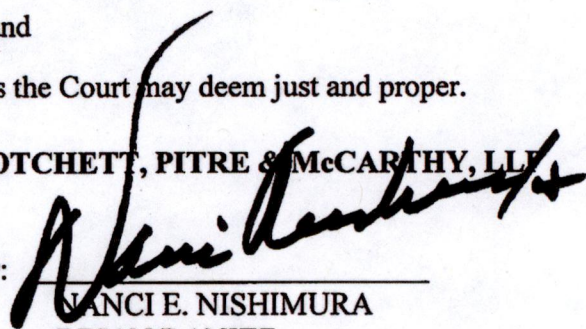 and
s the Court may deem just and proper.
OTCHETT, PITRE & McCARTHY, LLP
:
NANCI E. NISHIMURA